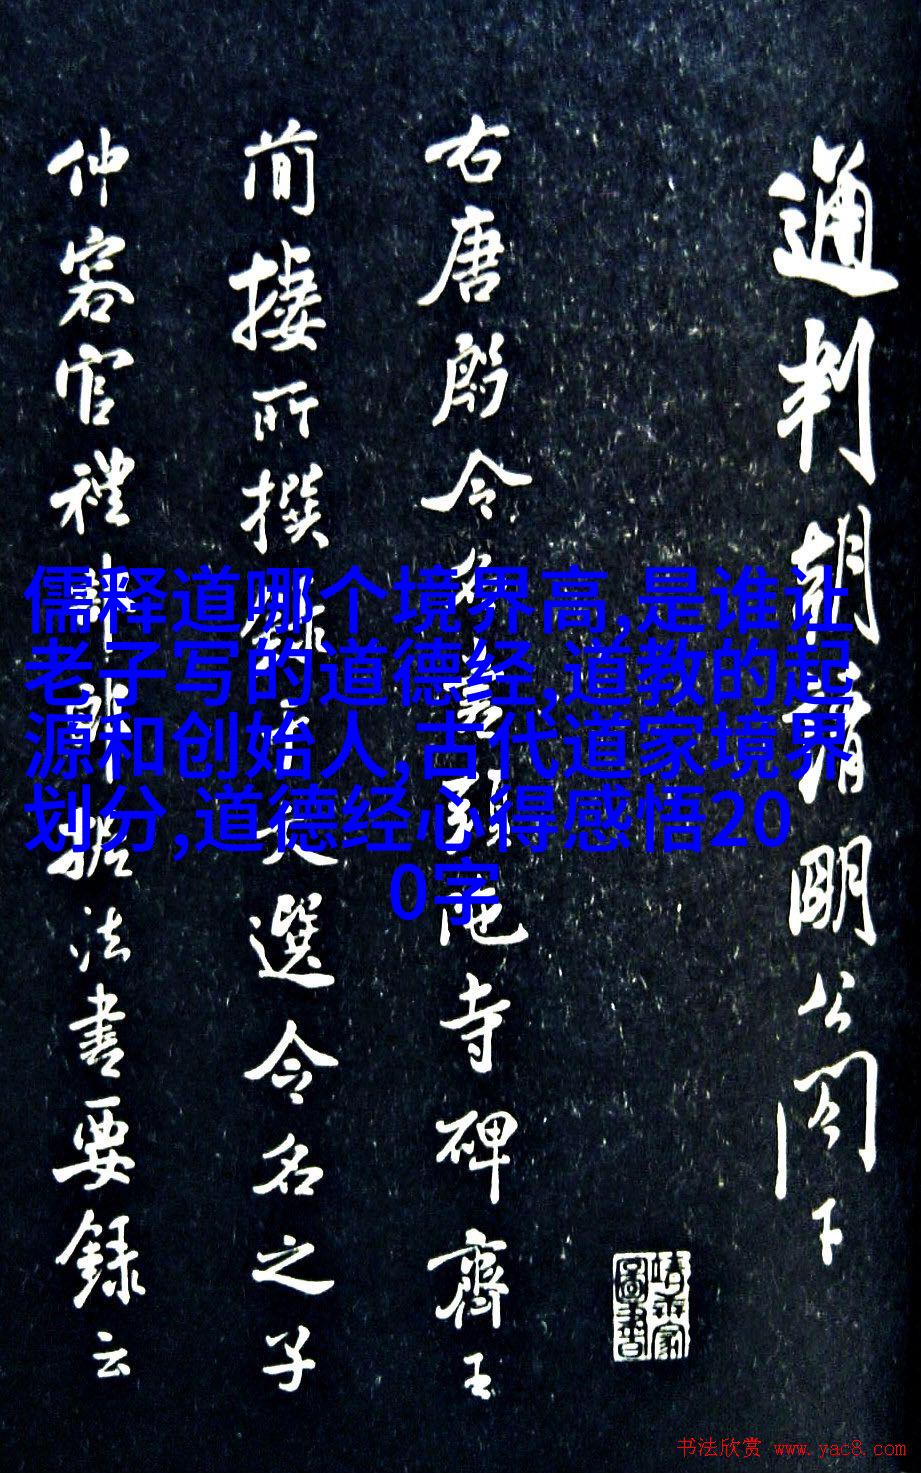 通判朝請明公閤下
右唐殷令名書頭陁寺碑齊王
簡棲所撰錄在文選令名之子
仲容官禮部郎據法書要録云
儒释道哪个境界高,是谁让
老子写的道德经,道教的起
源和创始人,古代道家境界
划分,道德经心得感悟20
0字
书法欣赏 www.yac8.com